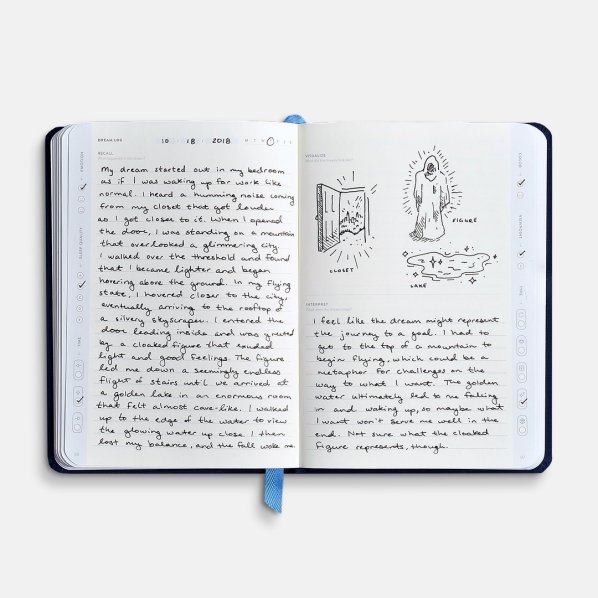 DREAM LOG
10 18 2018 M T W T F S S
RECALL
My dream started out in my bedroom
as if I was waking up for work like
normal. I heard a humming noise coming
from my closet that got louder
as I got closer to it. When I opened
the door, I was standing on a mountain
that overlooked a glimmering city.
I walked over the threshold and found
that I became lighter and began
hovering above the ground. In my flying
state, I hovered closer to the city,
eventually arriving to the rooftop of
a silvery skyscraper. I entered the
door leading inside and was greeted
by a cloaked figure that exuded
light and good feelings. The figure
led me down a seemingly endless
flight of stairs until we arrived at
a golden lake in an enormous room
that felt almost cave-like. I walked
up to the edge of the water to view
the glowing water up close. I then
lost my balance, and the fall woke me.
EMOTION
SLEEP QUALITY
TIME
VISUALIZE
CLOSET
FIGURE
LAKE
INTERPRET
I feel like the dream might represent
the journey to a goal. I had to
get to the top of a mountain to
begin flying, which could be a
metaphor for challenges on the
way to what I want. The golden
water ultimately led to me falling
in and waking up, so maybe what
I want won't serve me well in the
end. Not sure what the cloaked
figure represents, though.
COLOR
TIME